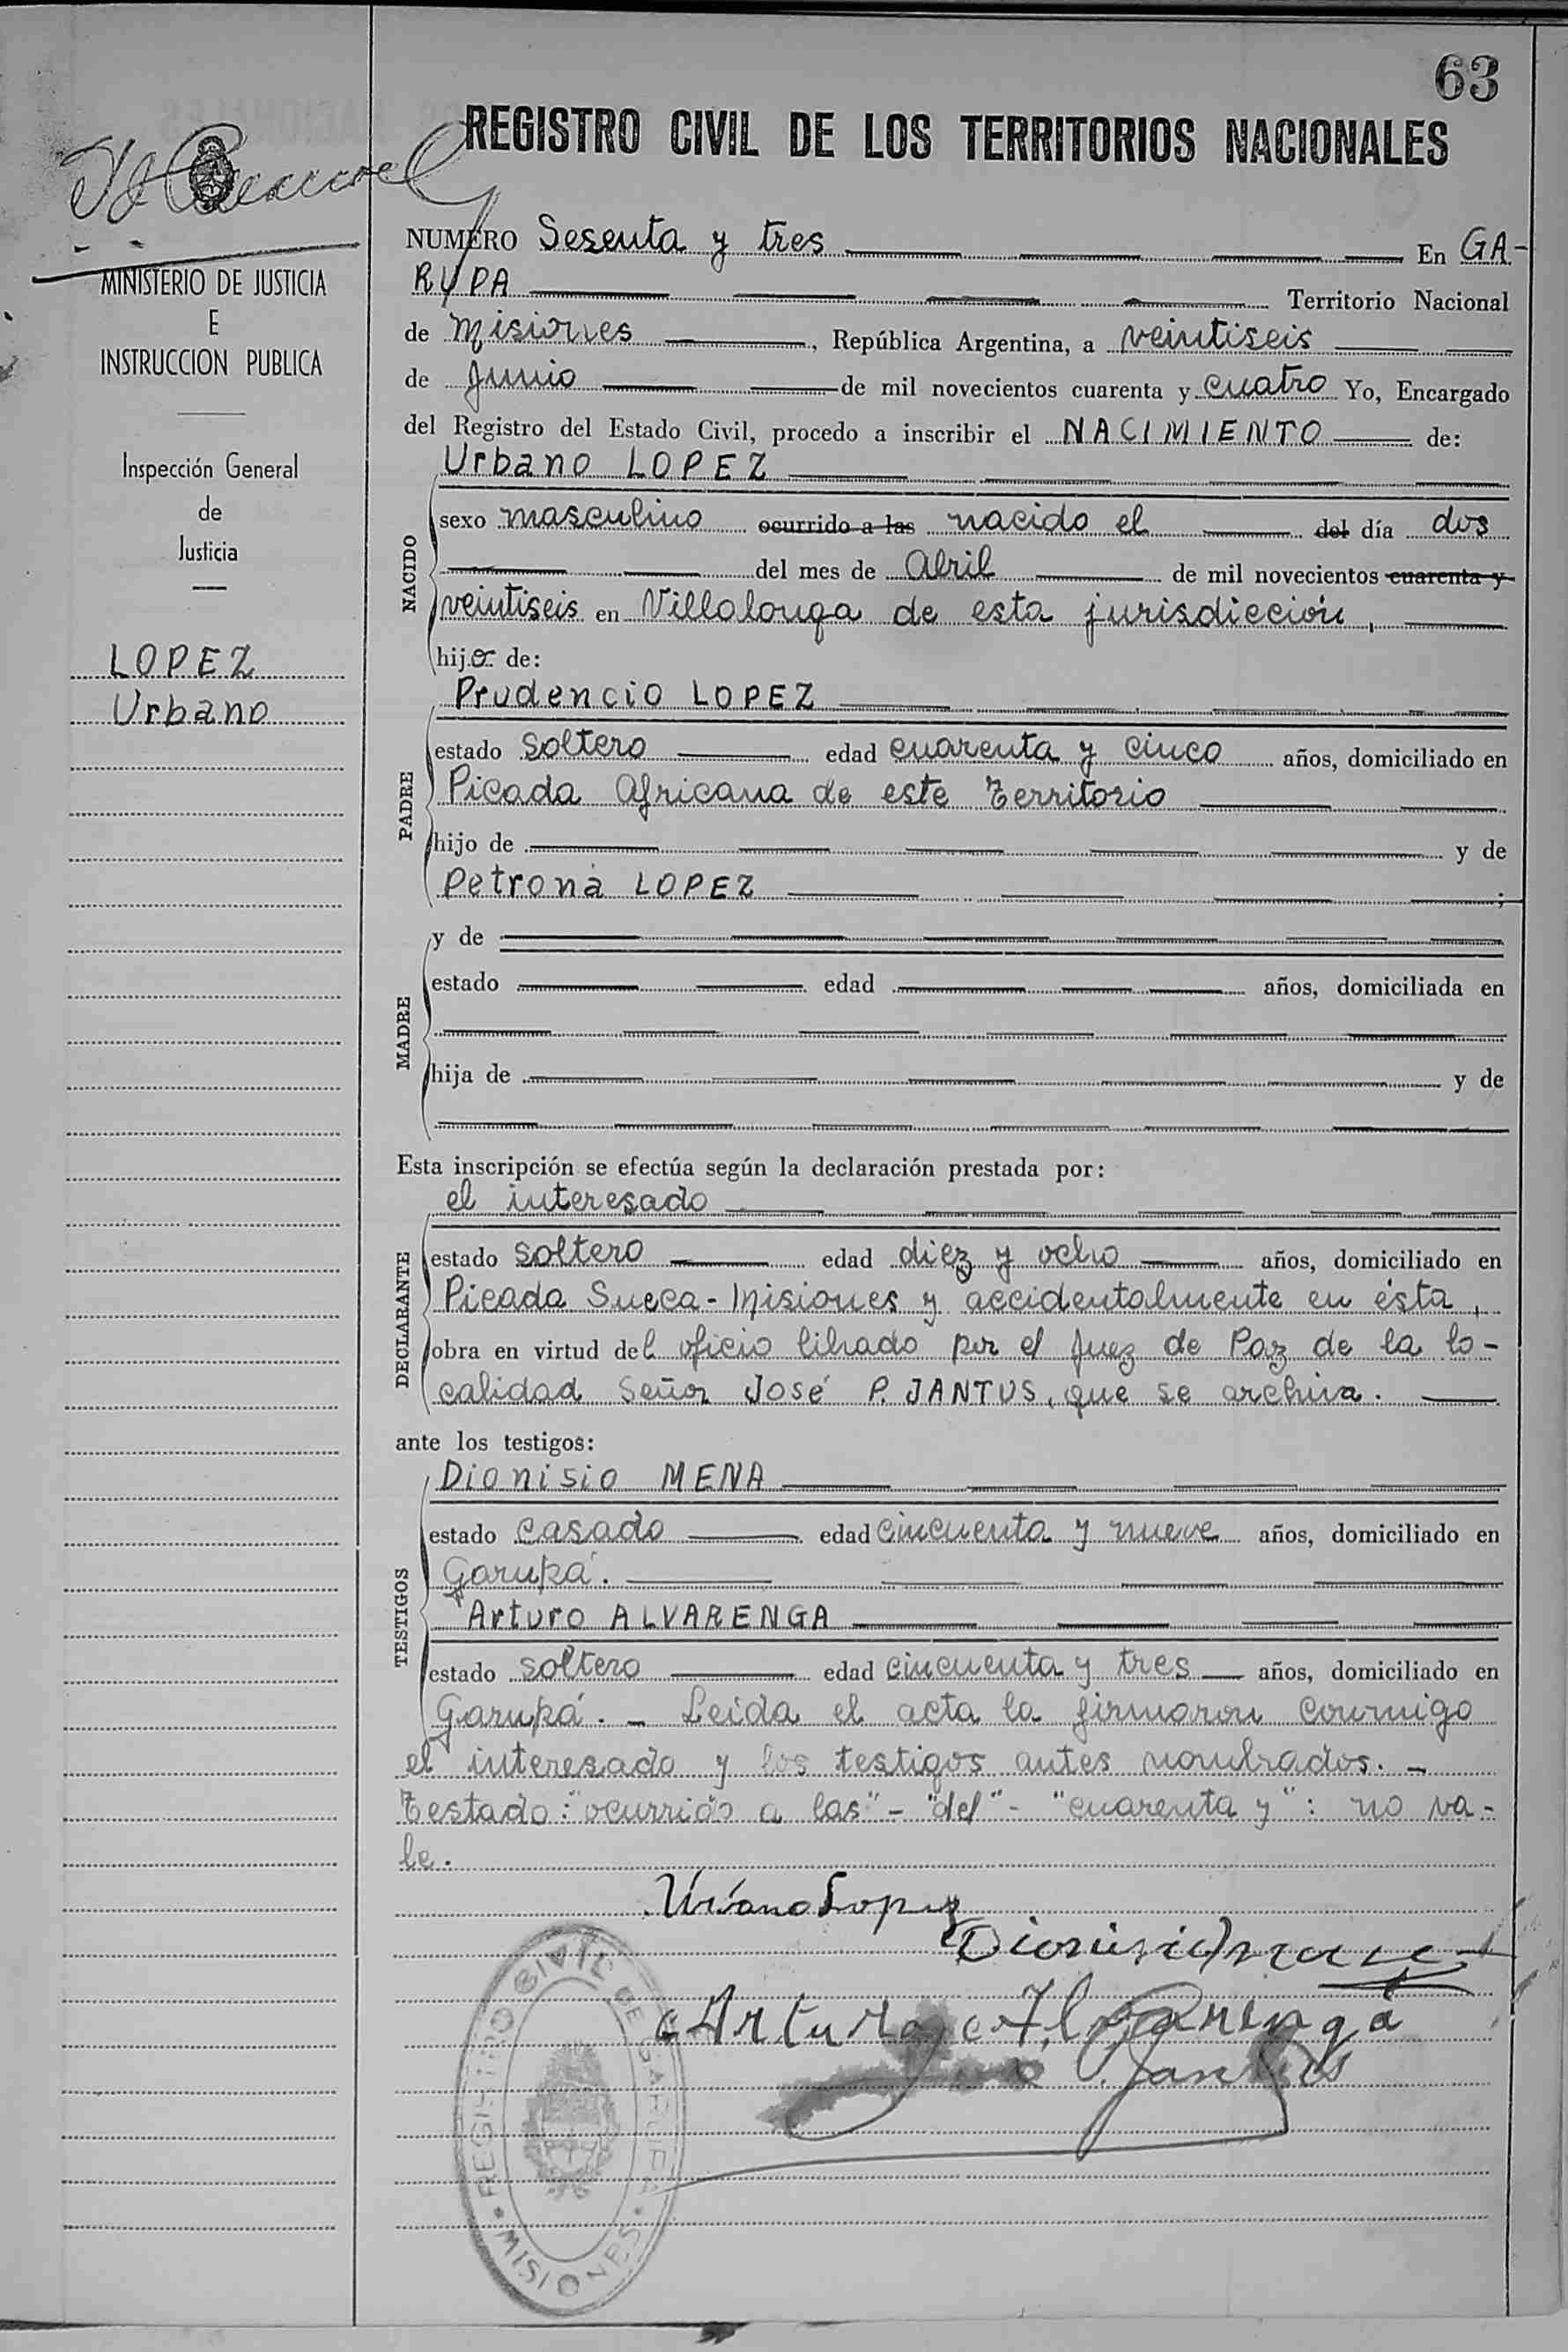 63
REGISTRO CIVIL DE LOS TERRITORIOS NACIONALES
MINISTERIO DE JUSTICIA
E
INSTRUCCION PUBLICA
Inspección General
de
Justicia
LOPEZ
Urbano
NUMERO Sesenta y tres En GA-
RUPA Territorio Nacional
de Misiones, República Argentina, a veintiseis
de Junio de mil novecientos cuarenta y cuatro Yo, Encargado
del Registro del Estado Civil, procedo a inscribir el NACIMIENTO de:
Urbano LOPEZ
NACIDO
sexo masculino ocurrido a las nacido el del día dos
del mes de Abril de mil novecientos cuarenta y
veintiseis en Villalonga de esta jurisdicción,
hijo de:
Prudencio LOPEZ
PADRE
estado soltero edad cuarenta y cinco años, domiciliado en
Picada Africana de este Territorio
hijo de y de
Petrona LOPEZ ;
MADRE
y de
estado edad años, domiciliada en
hija de y de
Esta inscripción se efectúa según la declaración prestada por:
el interesado
DECLARANTE
estado soltero edad diez y ocho años, domiciliado en
Picada Sueca - Misiones y accidentalmente en ésta,
obra en virtud del oficio librado por el Juez de Paz de la lo-
calidad Señor José P. JANTUS, que se archiva.
ante los testigos:
Dionisio MENA
TESTIGOS
estado casado edad cincuenta y nueve años, domiciliado en
Garupá.
Arturo ALVARENGA
estado soltero edad cincuenta y tres años, domiciliado en
Garupá. - Leida el acta la firmaron conmigo
el interesado y los testigos antes nombrados. -
Testado: "ocurrido a las" - "del" - "cuarenta y": no va-
le.
Urbano Lopez
Dionisio Mena
Arturo Alvarenga
Jantus
REGISTRO CIVIL DE GARUPA
MISIONES